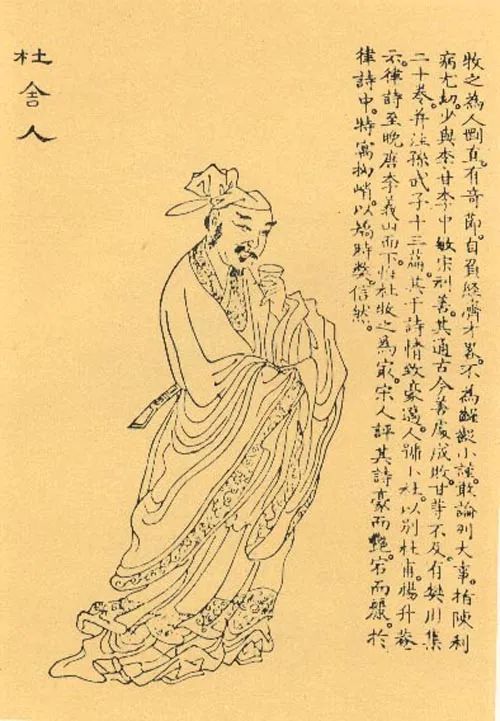 牧之為人剛直。有奇節。自負經濟才畧。不為齪齪小謹。敢論列大事。指陳利
病尤切。少與李甘李中敏宋利善。其通古今善處成敗。甘等不及。有樊川集
二十卷。并注孫武子十三篇。其于詩情致豪邁。人號小杜。以別杜甫。楊升菴
云。律詩至晚唐李義山而下。惟杜牧之為最。宋人評其詩豪而艷。宕而麗。於
律詩中。特寓拗峭。以矯時弊。信然。
杜舍人